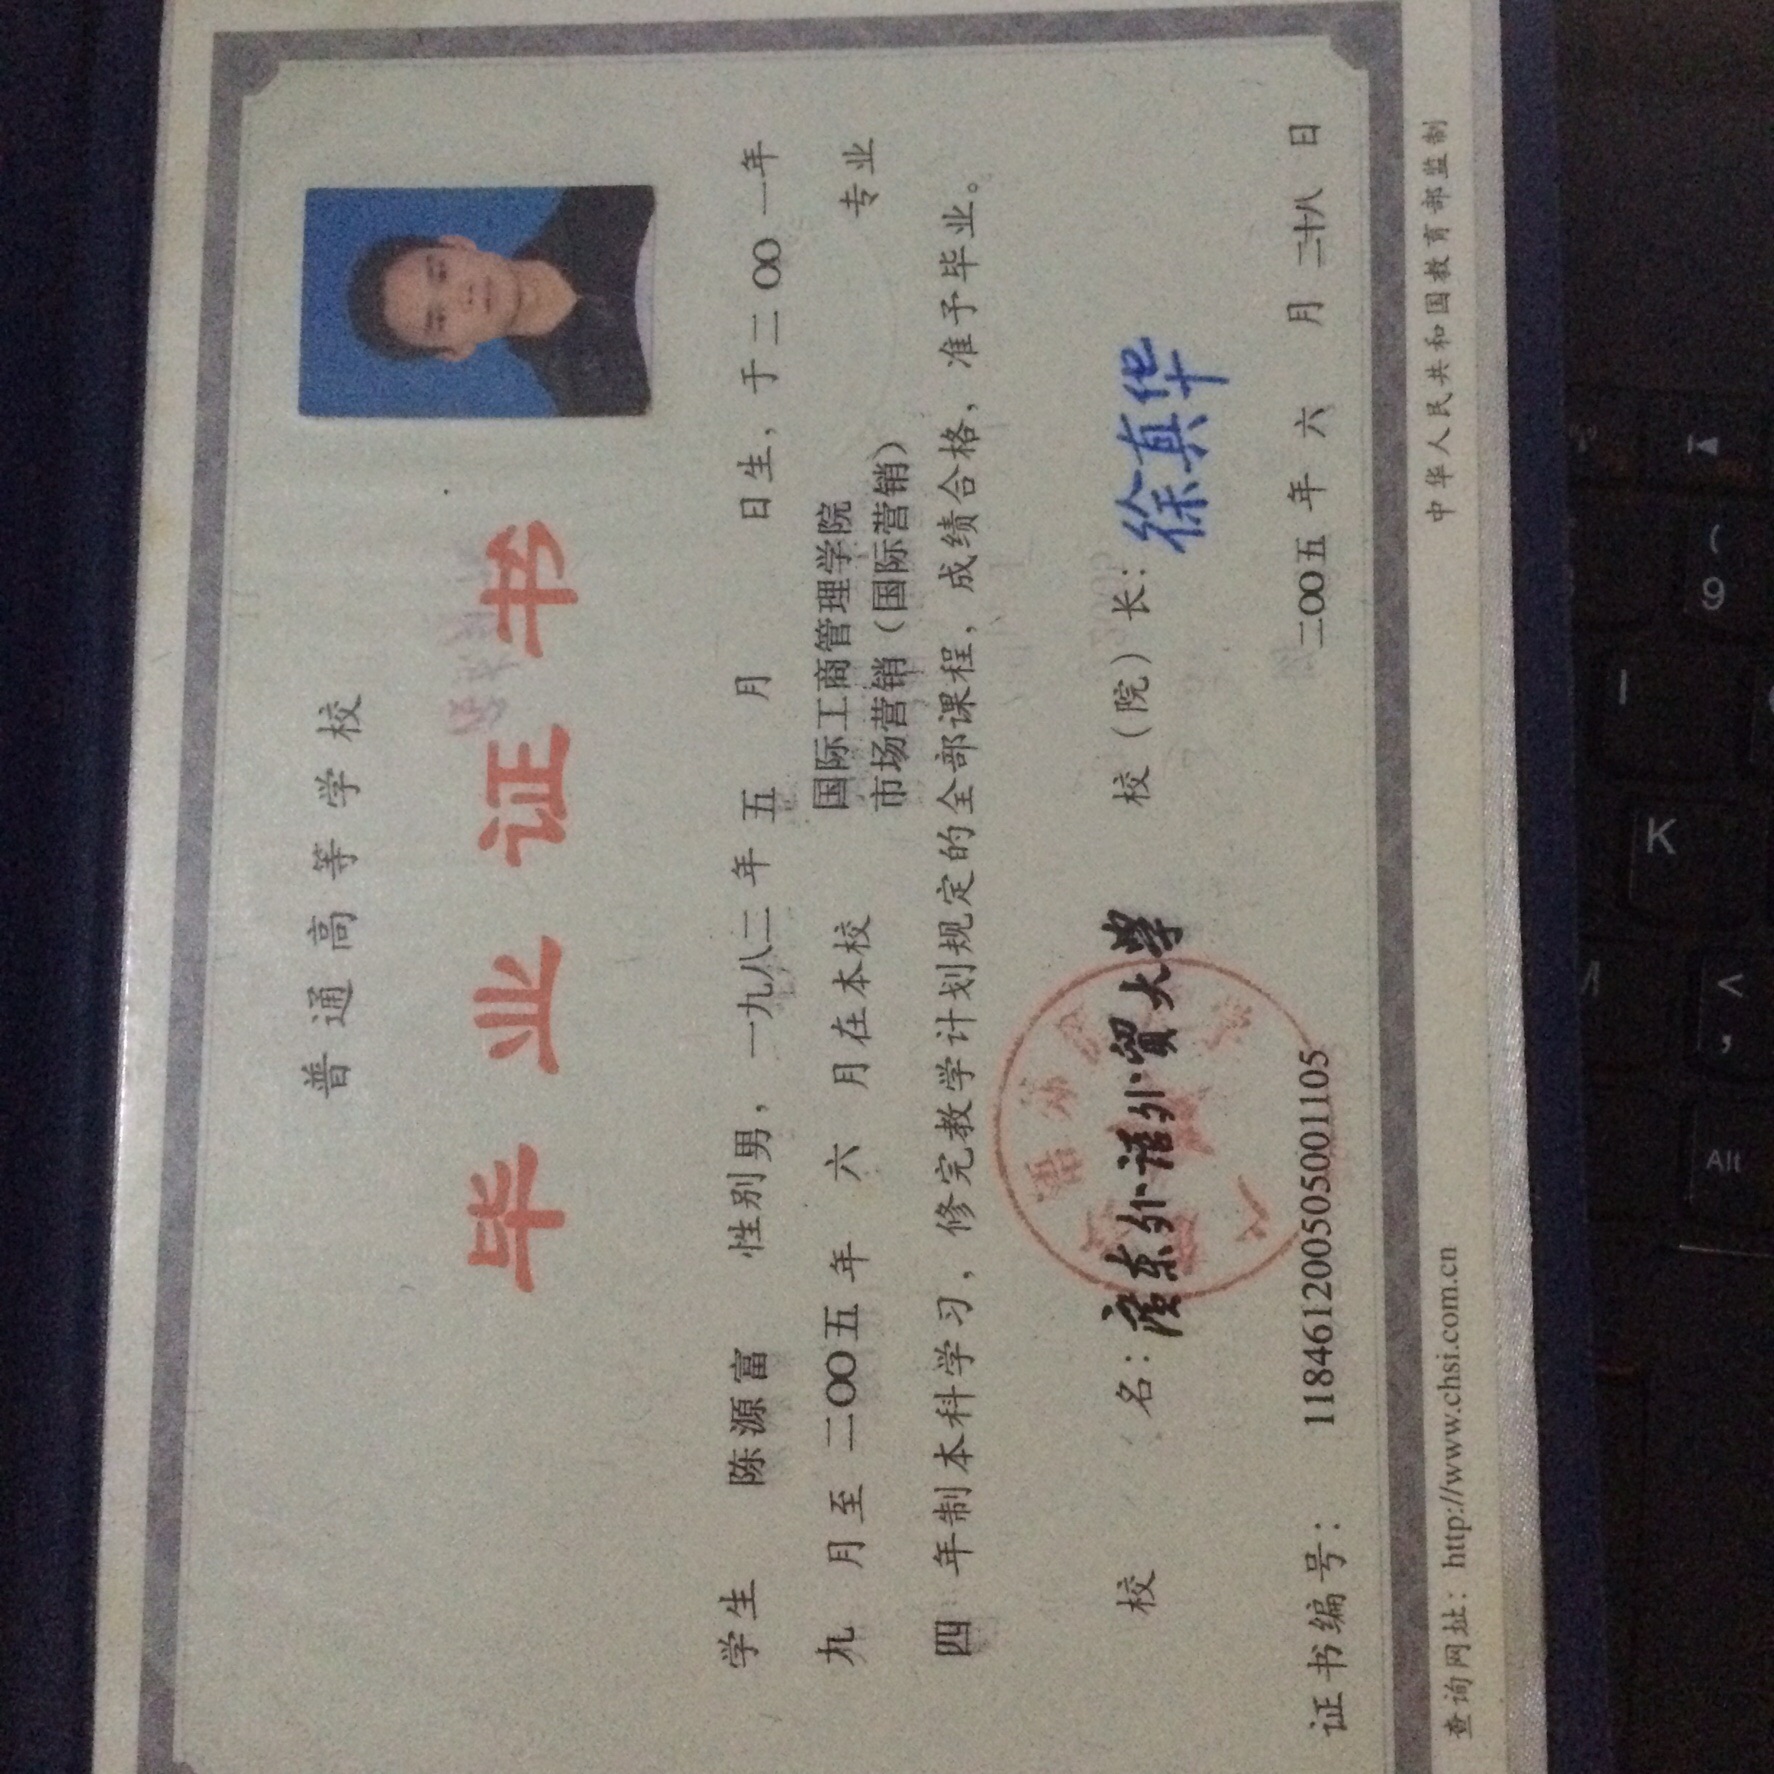 普通高等学校
毕业证书
学生 陈源富 性别男，一九八二年 五 月 日生，于二〇〇一年
九 月至二〇〇五年 六 月在本校 国际工商管理学院
市场营销（国际营销） 专业
四 年制本科学习，修完教学计划规定的全部课程，成绩合格，准予毕业。
校 名：广东外语外贸大学 校（院）长：徐真华
证书编号： 118461200505001105 二〇〇五年 六 月 二十八 日
查询网址：http://www.chsi.com.cn 中华人民共和国教育部监制
K
Alt
9 (